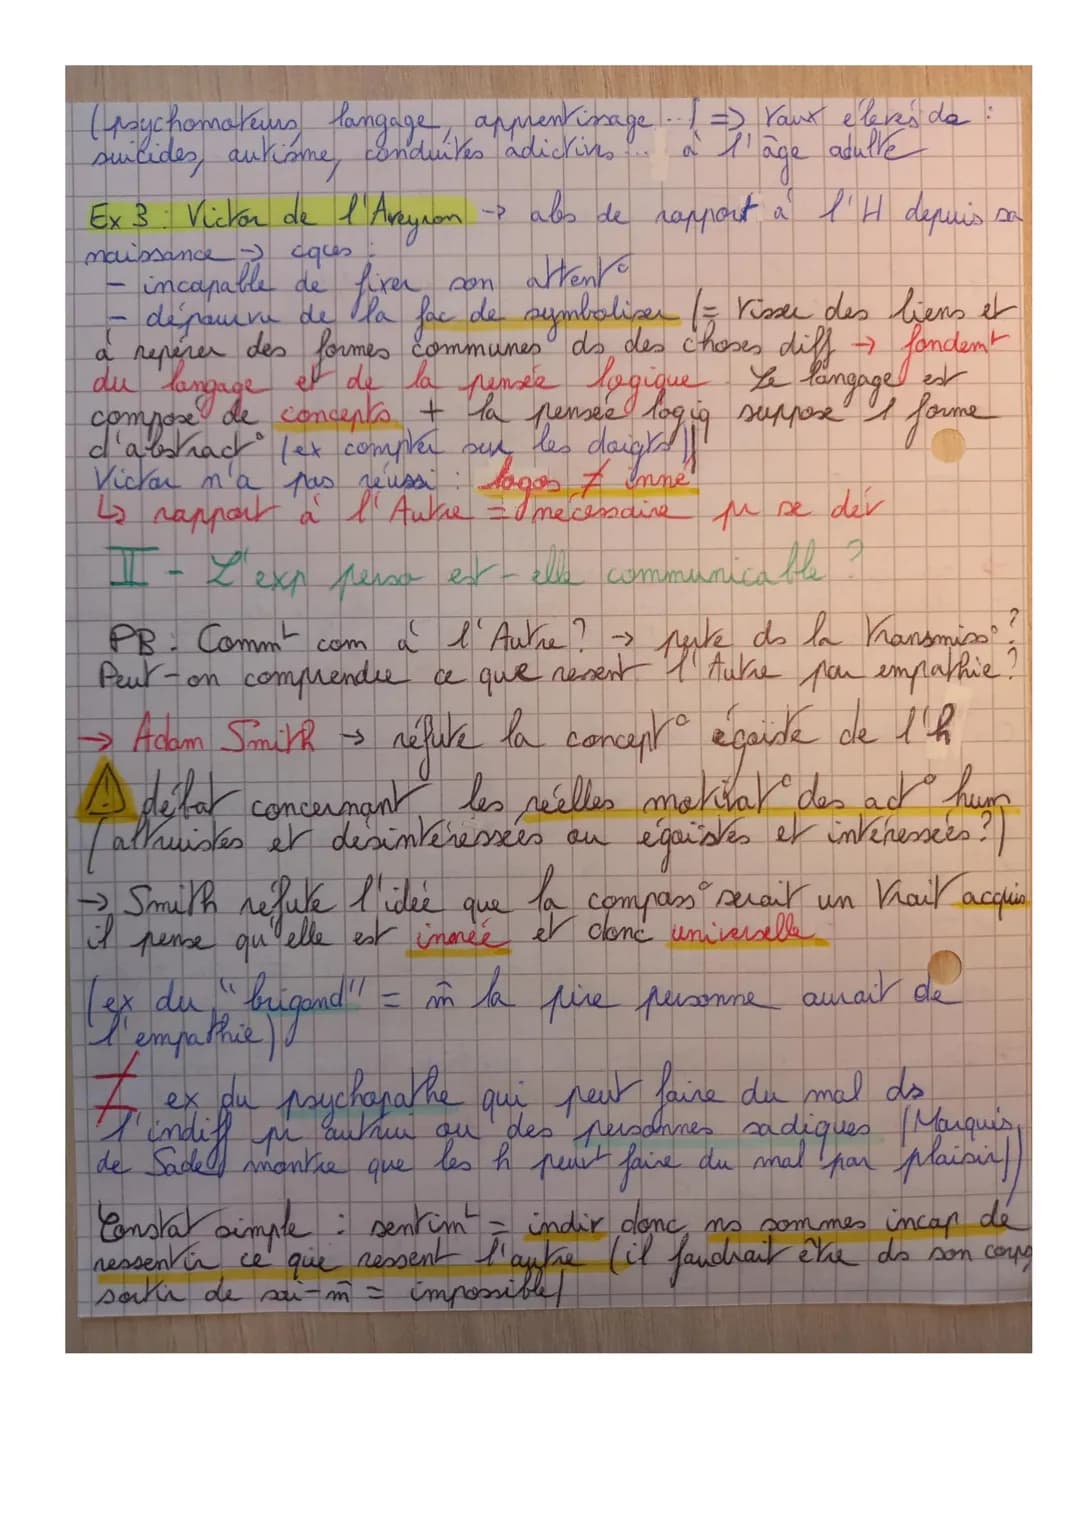 (psychomoteurs, langage, apprentissage...) => taux élevés de :
suicides, autisme, conduites adictives ... à l'âge adulte
Ex 3 : Victor de l'Aveyron -> abs de rapport à l'H depuis sa
naissance -> cques :
- incapable de fixer son attent°
- dépourvu de la fac de symboliser (= tisser des liens et
à repérer des formes communes ds des choses diff -> fondemt
du langage et de la pensée logique. Le langage est
composé de concepts + la pensée logiq suppose 1 forme
d'abstract° (ex compter sur les doigts))
Victor n'a pas réussi : logos ≠ inné
↳ rapport à l'Autre = nécessaire pr se dév
II - L'exp perso est-elle communicable ?
PB : Commt com à l'Autre ? -> perte ds la transmiss° ?
Peut-on comprendre ce que resent l'Autre par empathie ?
-> Adam Smith -> réfute la concept° égoïste de l'h
⚠ débat concernant les réelles motivat° des act° hum
(altruistes et désintéressées ou égoïstes et intéressées ?)
-> Smith réfute l'idée que la compass° serait un trait acquis
il pense qu'elle est innée et donc universelle
(ex du "brigand" = m̂ la pire personne aurait de
l'empathie)
≠ ex du psychopathe qui peut faire du mal ds
l'indiff pr autrui ou des personnes sadiques (Marquis
de Sade montre que les h peuvt faire du mal par plaisir))
Constat simple : sentimt = indiv donc ns sommes incap de
ressentir ce que ressent l'autre (il faudrait être ds son corps
sortir de soi-m̂ = impossible)